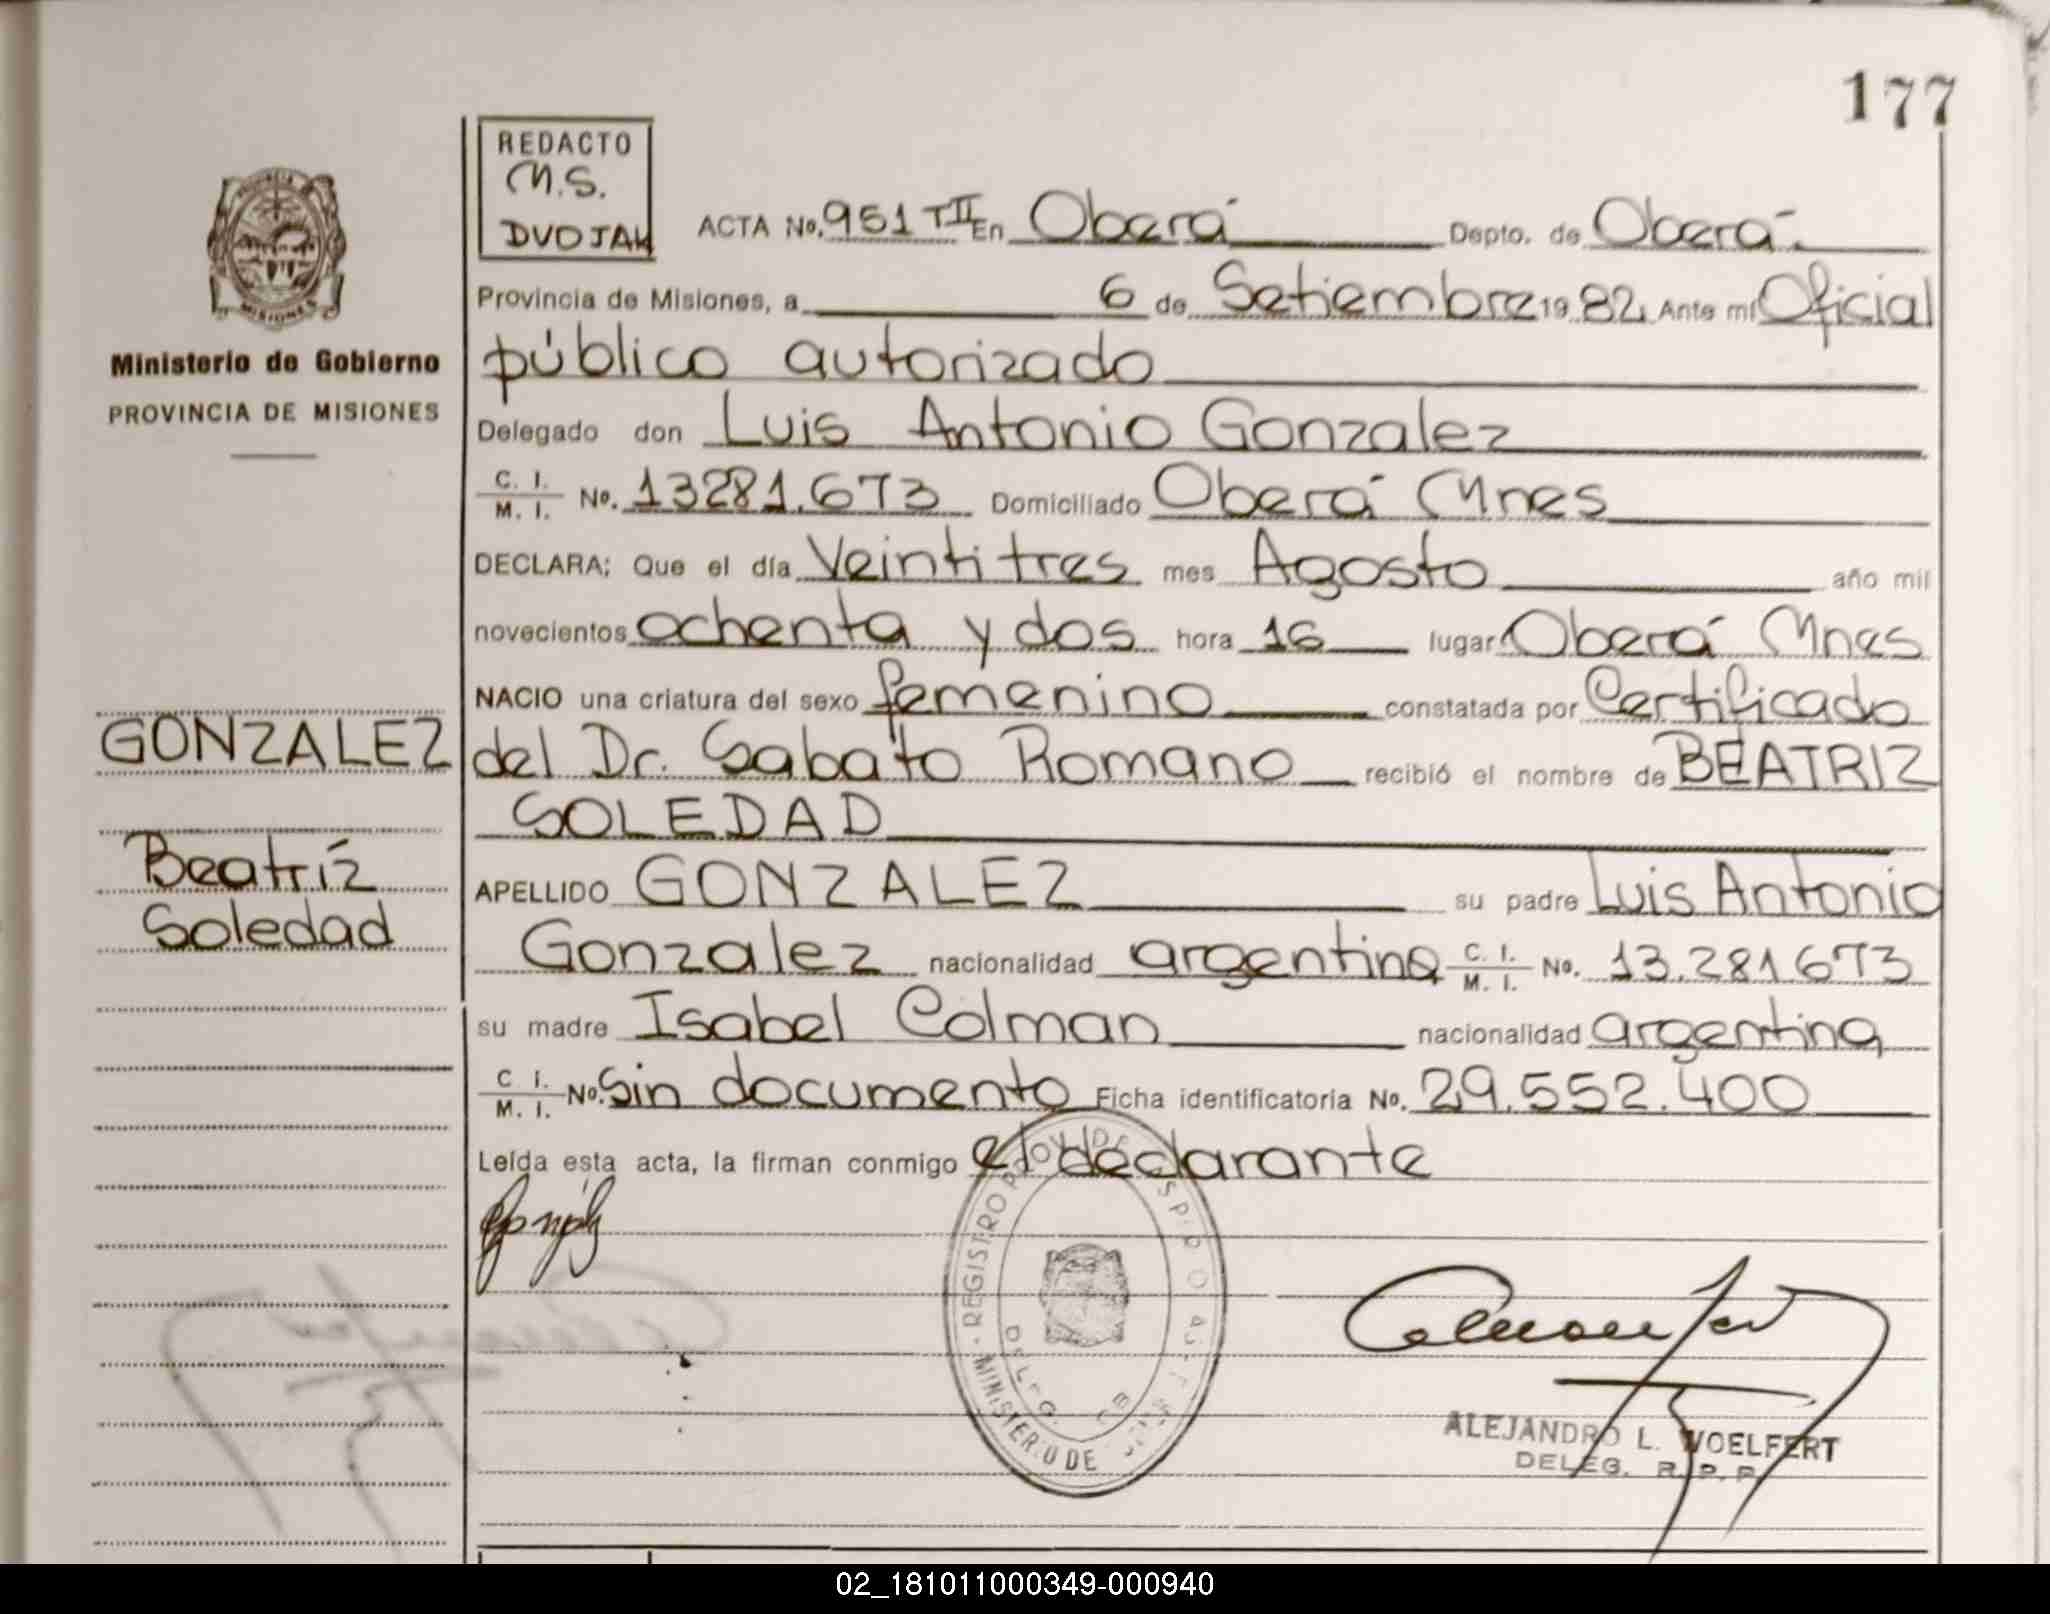 177
REDACTO
M.S.
DVOJAK
ACTA No. 951 TII En Oberá Depto. de Oberá
Provincia de Misiones, a 6 de Setiembre 1982 Ante mi Oficial
público autorizado
Ministerio de Gobierno
PROVINCIA DE MISIONES
Delegado don Luis Antonio Gonzalez
C. I. M. I. No. 13281.673 Domiciliado Oberá Mnes
DECLARA: Que el día Veintitres mes Agosto año mil
novecientos ochenta y dos hora 16 lugar Oberá Mnes
NACIO una criatura del sexo femenino constatada por Certificado
GONZALEZ
del Dr. Sabato Romano recibió el nombre de BEATRIZ
SOLEDAD
Beatríz
Soledad
APELLIDO GONZALEZ su padre Luis Antonio
Gonzalez nacionalidad argentina C. I. M. I. No. 13.281673
su madre Isabel Colman nacionalidad argentina
C. I. M. I. No. Sin documento Ficha identificatoria No. 29.552.400
Leída esta acta, la firman conmigo el declarante
REGISTRO
MINISTERIO DE
ALEJANDRO L. WOELFERT
DELEG. R. P. P.
02_181011000349-000940